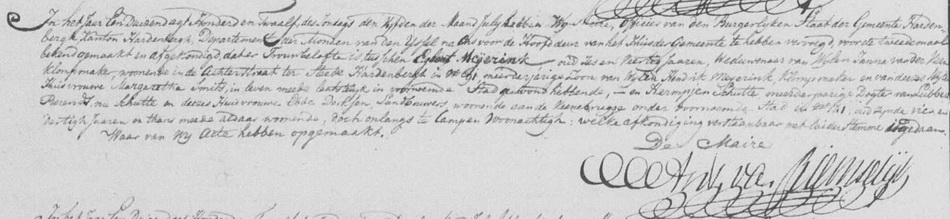 In het Jaar Een Duizend agt Honderd en Twaalf, des Zondags den Vyfden der Maand July hebben Wy Maire, Officier van den Burgerlyken Staat der Gemeente Harden
bergh, Kanton Hardenbergh, Departement der Monden van den Yssel na Ons voor de Hoofddeur van het Huis der Gemeente te hebben vervoegd, voor de tweedemaal
bekendgemaakt en afgekondigd, dat er Trouwbelofte is tusschen Egbert Meijerink oud Zes en Veertig Jaaren, Weduwnaar van Wylen Janna van der Veen
Klompmaker, woonende in de Achterstraat ter Steede Hardenbergh in meerderjarige Zoon van Wylen Hendrik Meyerink Klompmaker en van deszelfs
Huisvrouwe Margaretha Smit, in leven mede laatstelyk in voornoemde Stad gewoond hebbende, en Harmpjen Schutte meerderjarige Dogter van Lubbert
Berends, nu Schutte en deszes Huisvrouwe Ebbe Derksen, Landbouwers woonende aan de Veenebrugge onder voornoemde Stad, oud zynde vier en
dertigh Jaaren en thans mede aldaar woonende, doch onlangs te Campen woonachtigh: welke afkondiging verstaanbaar met luider stemme is gedaan.
Waar van Wy Acte hebben opgemaakt.
De Maire
Ant. van Riemsdijk
In het Jaar Een Duizend agt Honderd